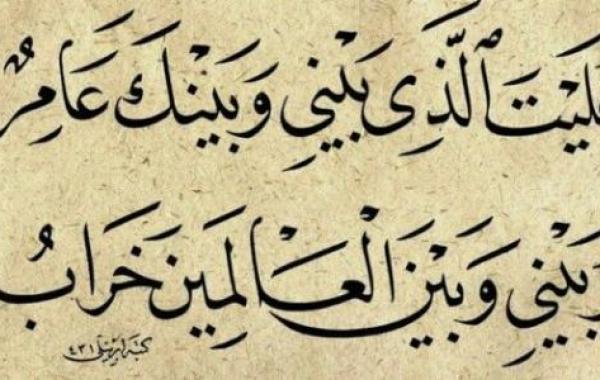 لَيْتَ ٱلَّذِي بَيْنِي وَبَيْنَكَ عَامِرٌ
وَبَيْنِي وَبَيْنَ الْعَالَمِينَ خَرَابُ
كتبه ٤٣١